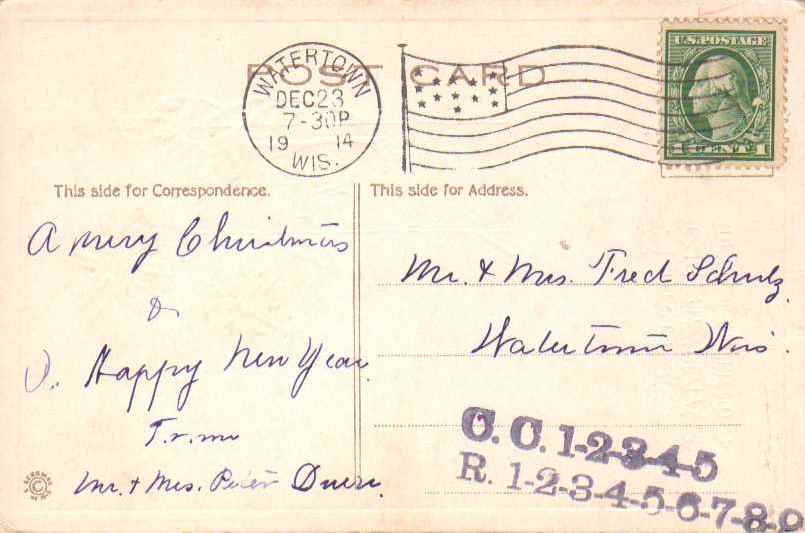 POST CARD
WATERTOWN
DEC 23
7-30P
19 14
WIS.
U.S. POSTAGE
1 CENT 1
This side for Correspondence.
A merry Christmas
&
Happy New Year
From
Mr. & Mrs. Peter
This side for Address.
Mr. & Mrs. Fred Schulz
Watertown Wis.
C. C. 1-2-3-4-5
R. 1-2-3-4-5-6-7-8-9